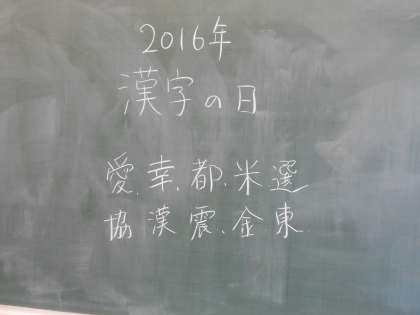 2016年
漢字の日
愛、幸、都、米選
協漢震、金東